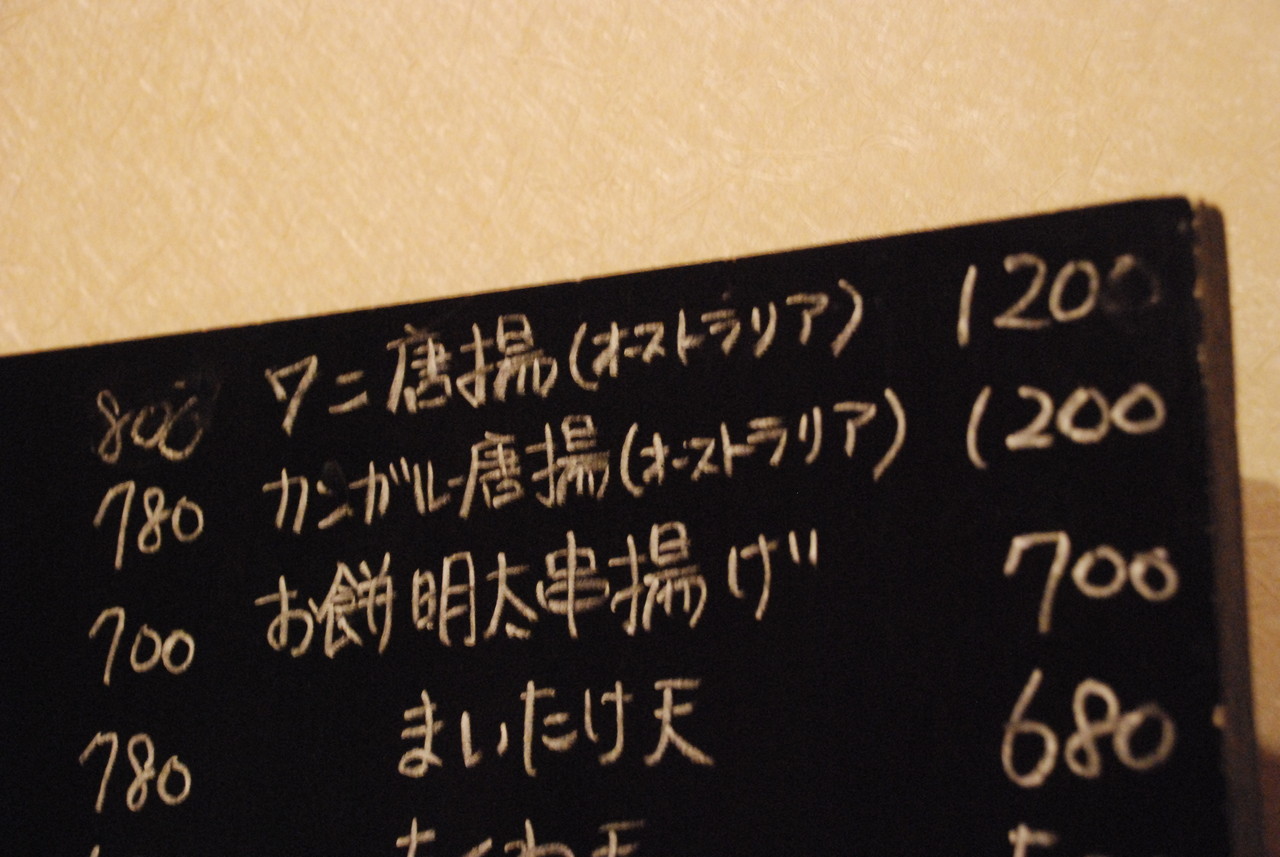 800 ワニ唐揚(オーストラリア) 1200
780 カンガルー唐揚(オーストラリア) 1200
700 お餅明太串揚げ" 700
780 まいたけ天 680